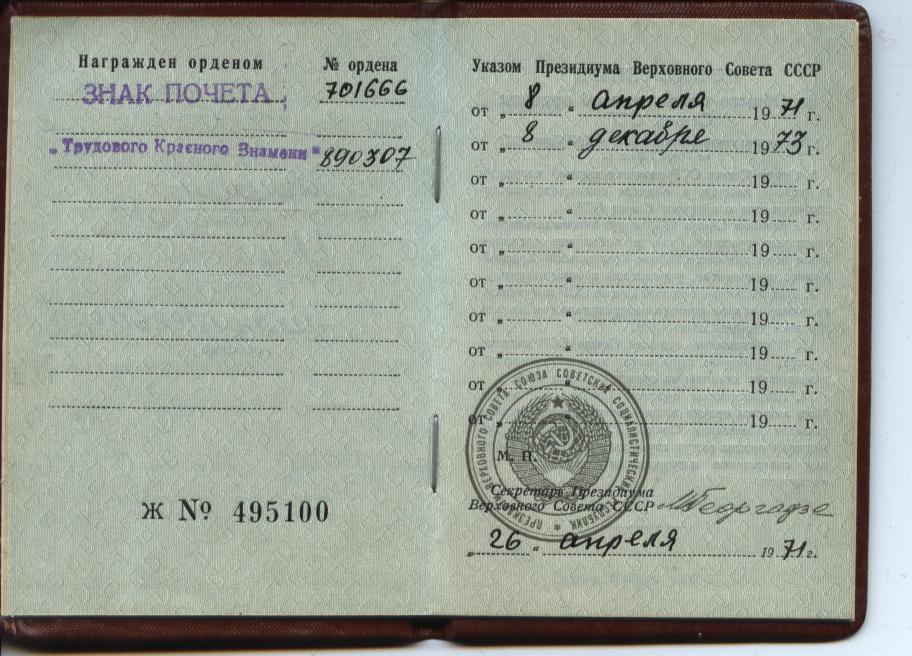 Награжден орденом № ордена
ЗНАК ПОЧЕТА 701666
„Трудового Красного Знамени“ 890307
Ж № 495100
Указом Президиума Верховного Совета СССР
от „ 8 “ апреля 1971 г.
от „ 8 “ декабря 1973 г.
от „ “ 19 г.
от „ “ 19 г.
от „ “ 19 г.
от „ “ 19 г.
от „ “ 19 г.
от „ “ 19 г.
от „ “ 19 г.
от „ “ 19 г.
ПРЕЗИДИУМ ВЕРХОВНОГО СОВЕТА СОЮЗА СОВЕТСКИХ СОЦИАЛИСТИЧЕСКИХ РЕСПУБЛИК
М. П.
Секретарь Президиума
Верховного Совета СССР МГеоргадзе
„ 26 “ апреля 1971 г.